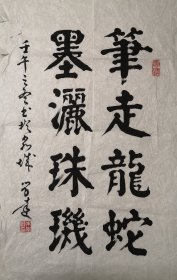 筆走龍蛇
墨灑珠璣
壬午之冬書於泉城